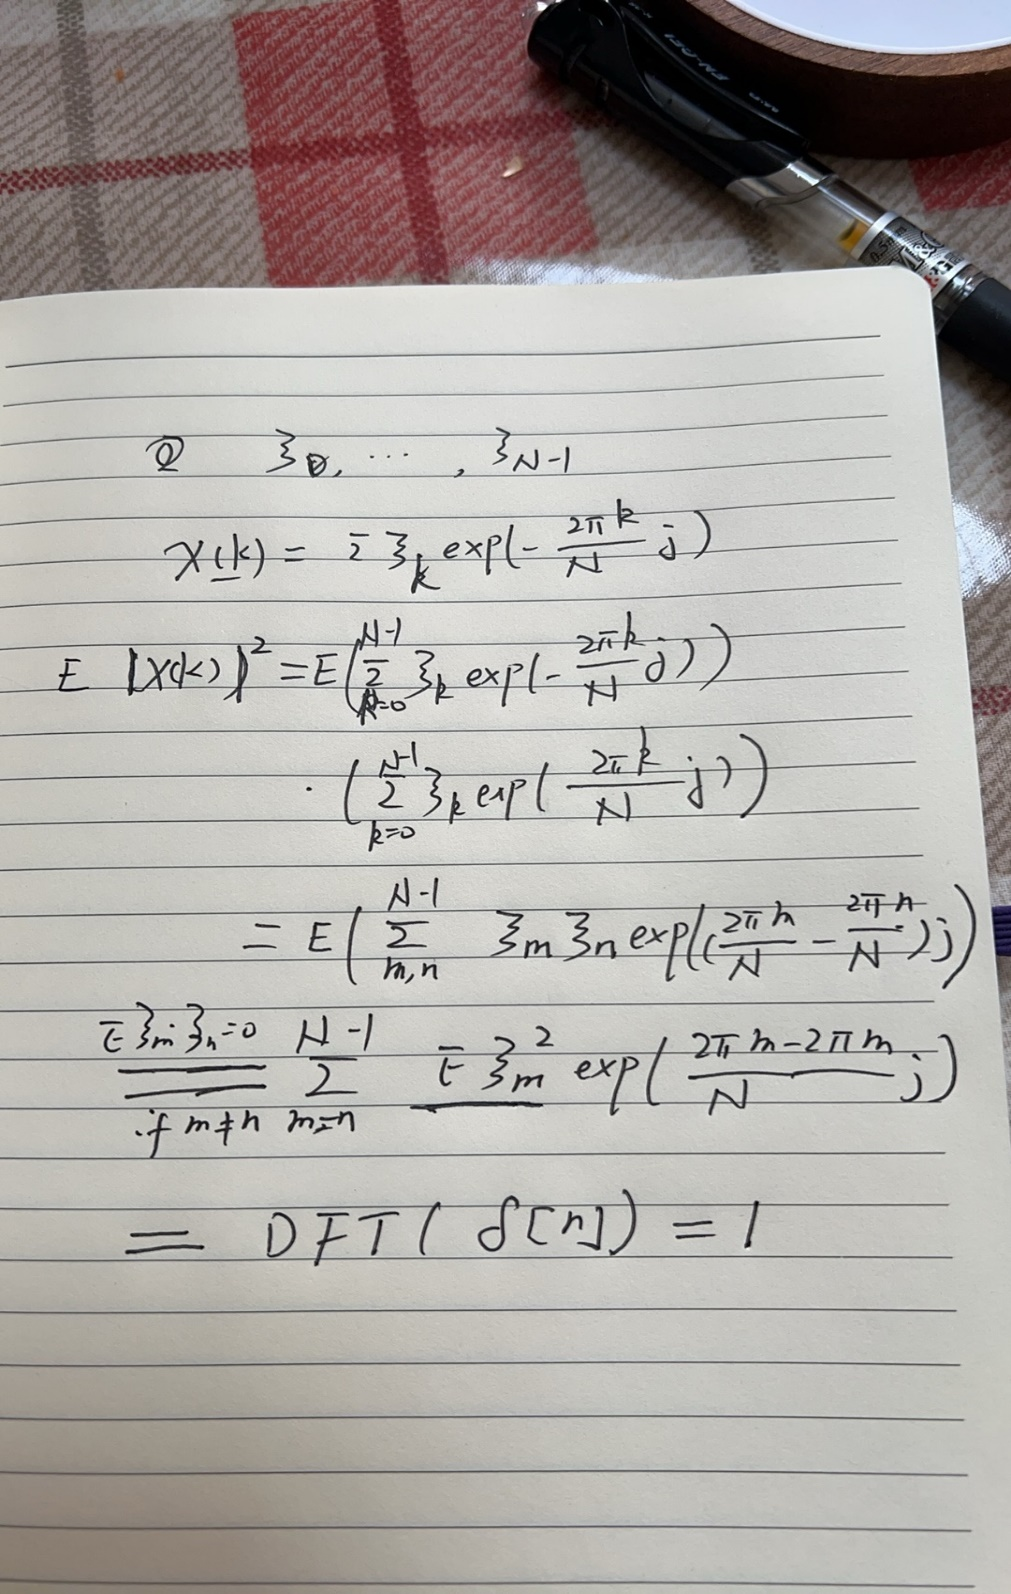 ② ξ₀, ⋯ , ξ_{N-1}
X(k) = Σ ξ_k exp(- \frac{2πk}{N} j)
E |X(k)|² = E( Σ_{k=0}^{N-1} ξ_k exp(- \frac{2πk}{N} j))
· ( Σ_{k=0}^{N-1} ξ_k exp( \frac{2πk}{N} j))
= E( Σ_{m,n}^{N-1} ξ_m ξ_n exp((\frac{2πm}{N} - \frac{2πn}{N}) j)
E ξ_m ξ_n = 0 if m≠n Σ_{m=n}^{N-1} E ξ_m² exp( \frac{2πm-2πm}{N} j)
= DFT( δ[n]) = 1
0.5mm M&G